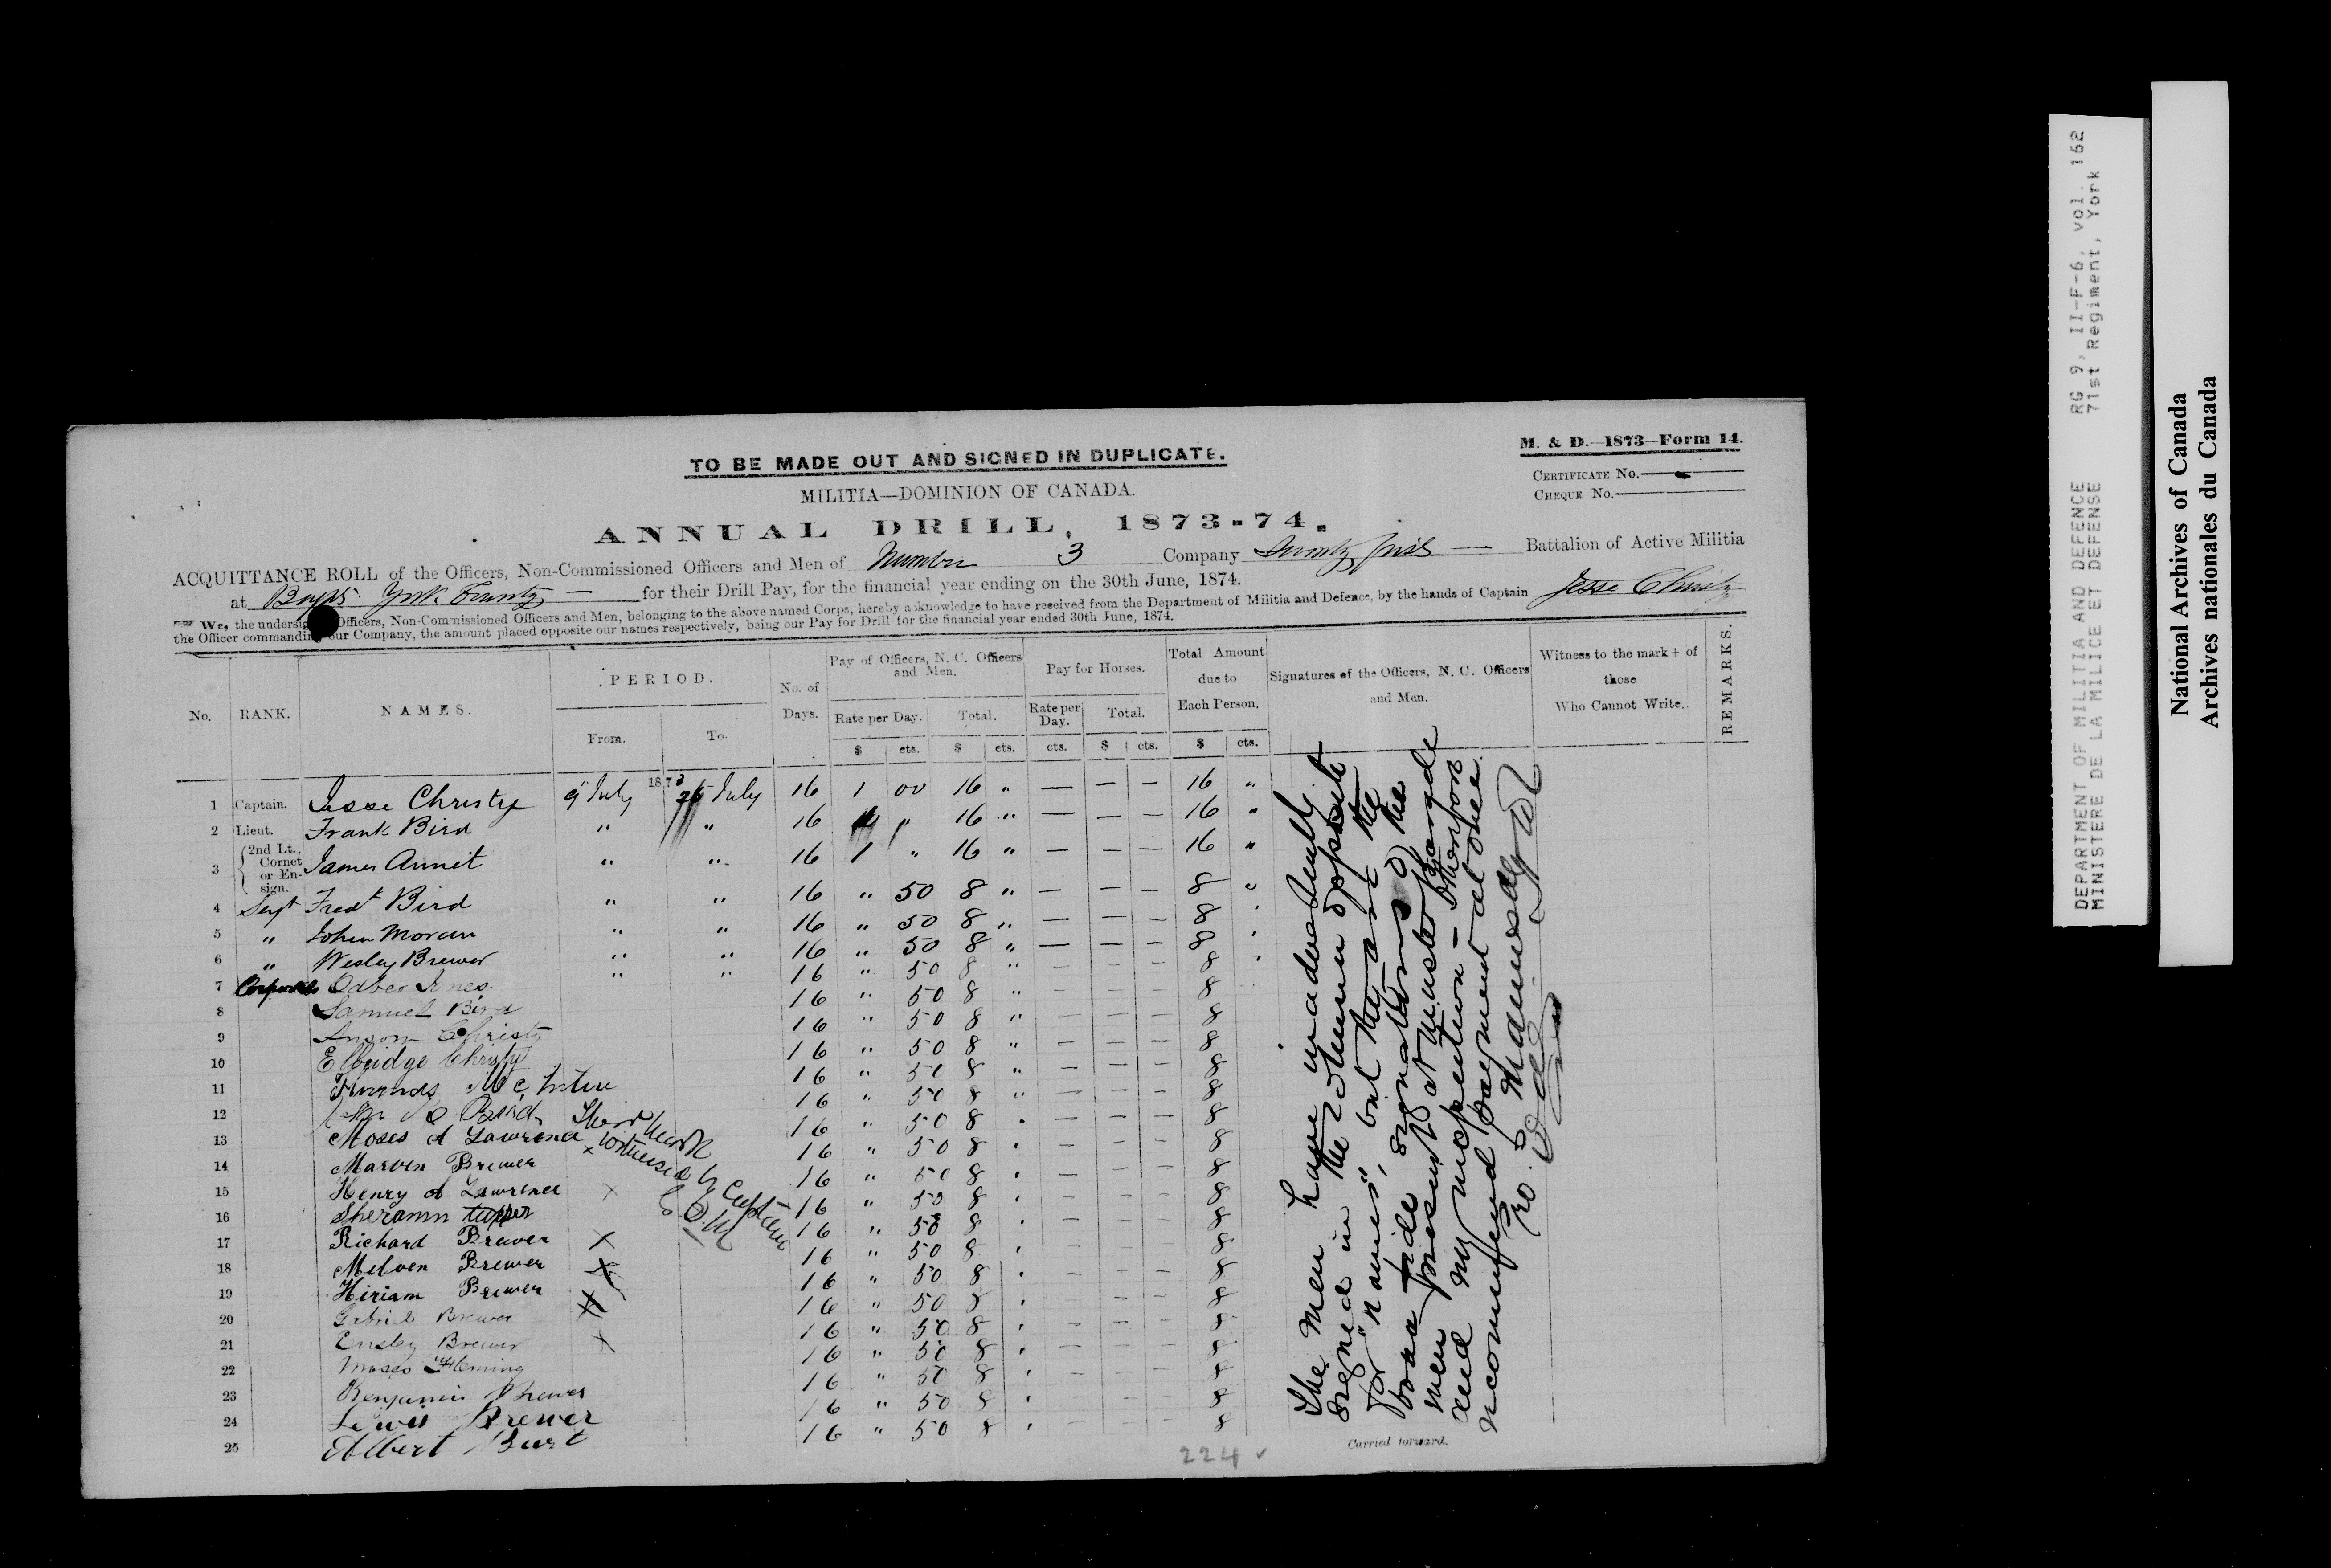 M. & D.—1873—Form 14.
TO BE MADE OUT AND SIGNED IN DUPLICATE.
CERTIFICATE No.
MILITIA—DOMINION OF CANADA.
CHEQUE No.
ANNUAL DRILL, 1873-74.
ACQUITTANCE ROLL of the Officers, Non-Commissioned Officers and Men of Number 3 Company Battalion of Active Militia
at York County — for their Drill Pay, for the financial year ending on the 30th June, 1874.
We, the undersigned Officers, Non-Commissioned Officers and Men, belonging to the above named Corps, hereby acknowledge to have received from the Department of Militia and Defence, by the hands of Captain Jesse Christy
the Officer commanding our Company, the amount placed opposite our names respectively, being our Pay for Drill for the financial year ended 30th June, 1874.
No. RANK. NAMES. PERIOD. No. of Days. Pay of Officers, N. C. Officers and Men. Pay for Horses. Total Amount due to Each Person. Signatures of the Officers, N. C. Officers and Men. Witness to the mark + of those Who Cannot Write. REMARKS.
From. To. Rate per Day. Total. Rate per Day. Total.
$ cts. $ cts. cts. $ cts. $ cts.
1873
1 Captain. Jesse Christy 9 July 26 July 16 1 00 16 " — — — 16 "
2 Lieut. Frank Bird " " 16 1 " 16 " — — — 16 "
3 2nd Lt., Cornet or Ensign. James Annit " " 16 1 " 16 " — — — 16 "
4 Sergt Fred Bird " " 16 " 50 8 " — — — 8 "
5 " John Moran " " 16 " 50 8 " — — — 8 "
6 " Wesley Brewer " " 16 " 50 8 " — — — 8 "
7 Corporals Odber Jones " " 16 " 50 8 " — — — 8
8 Samuel Bird 16 " 50 8 " — — — 8
9 Anson Christy 16 " 50 8 " — — — 8
10 Elbridge Christy 16 " 50 8 " — — — 8
11 16 " 50 8 " — — — 8
12 16 " 50 8 " — — — 8
13 Moses A Lawrence 16 " 50 8 " — — — 8
14 Marven Brewer × 16 " 50 8 " — — — 8
15 Henry A Lawrence × 16 " 50 8 " — — — 8
16 Sheramn tupper 16 " 50 8 " — — — 8
17 Richard Brewer × 16 " 50 8 " — — — 8
18 Melven Brewer × 16 " 50 8 " — — — 8
19 Hiriam Brewer × 16 " 50 8 " — — — 8
20 Brewer × 16 " 50 8 " — — — 8
21 Ensley Brewer × 16 " 50 8 " — — — 8
22 Moses Fleming 16 " 50 8 " — — — 8
23 Benjamin Brewer 16 " 50 8 " — — — 8
24 Lewis Brewer 16 " 50 8 " — — — 8
25 Albert Burt 16 " 50 8 " — — — 8
Their mark
witnessed by Captain
The men have inadvertently
signed in the column opposite
for "names", but they are the
bona fide signatures of the
men present at muster parade
and my inspection — I therefore
recommend payment at once
Carried forward.
224 ✓
DEPARTMENT OF MILITIA AND DEFENCE RG 9, II-F-6, vol. 162
MINISTERE DE LA MILICE ET DEFENSE 71st Regiment, York
National Archives of Canada
Archives nationales du Canada